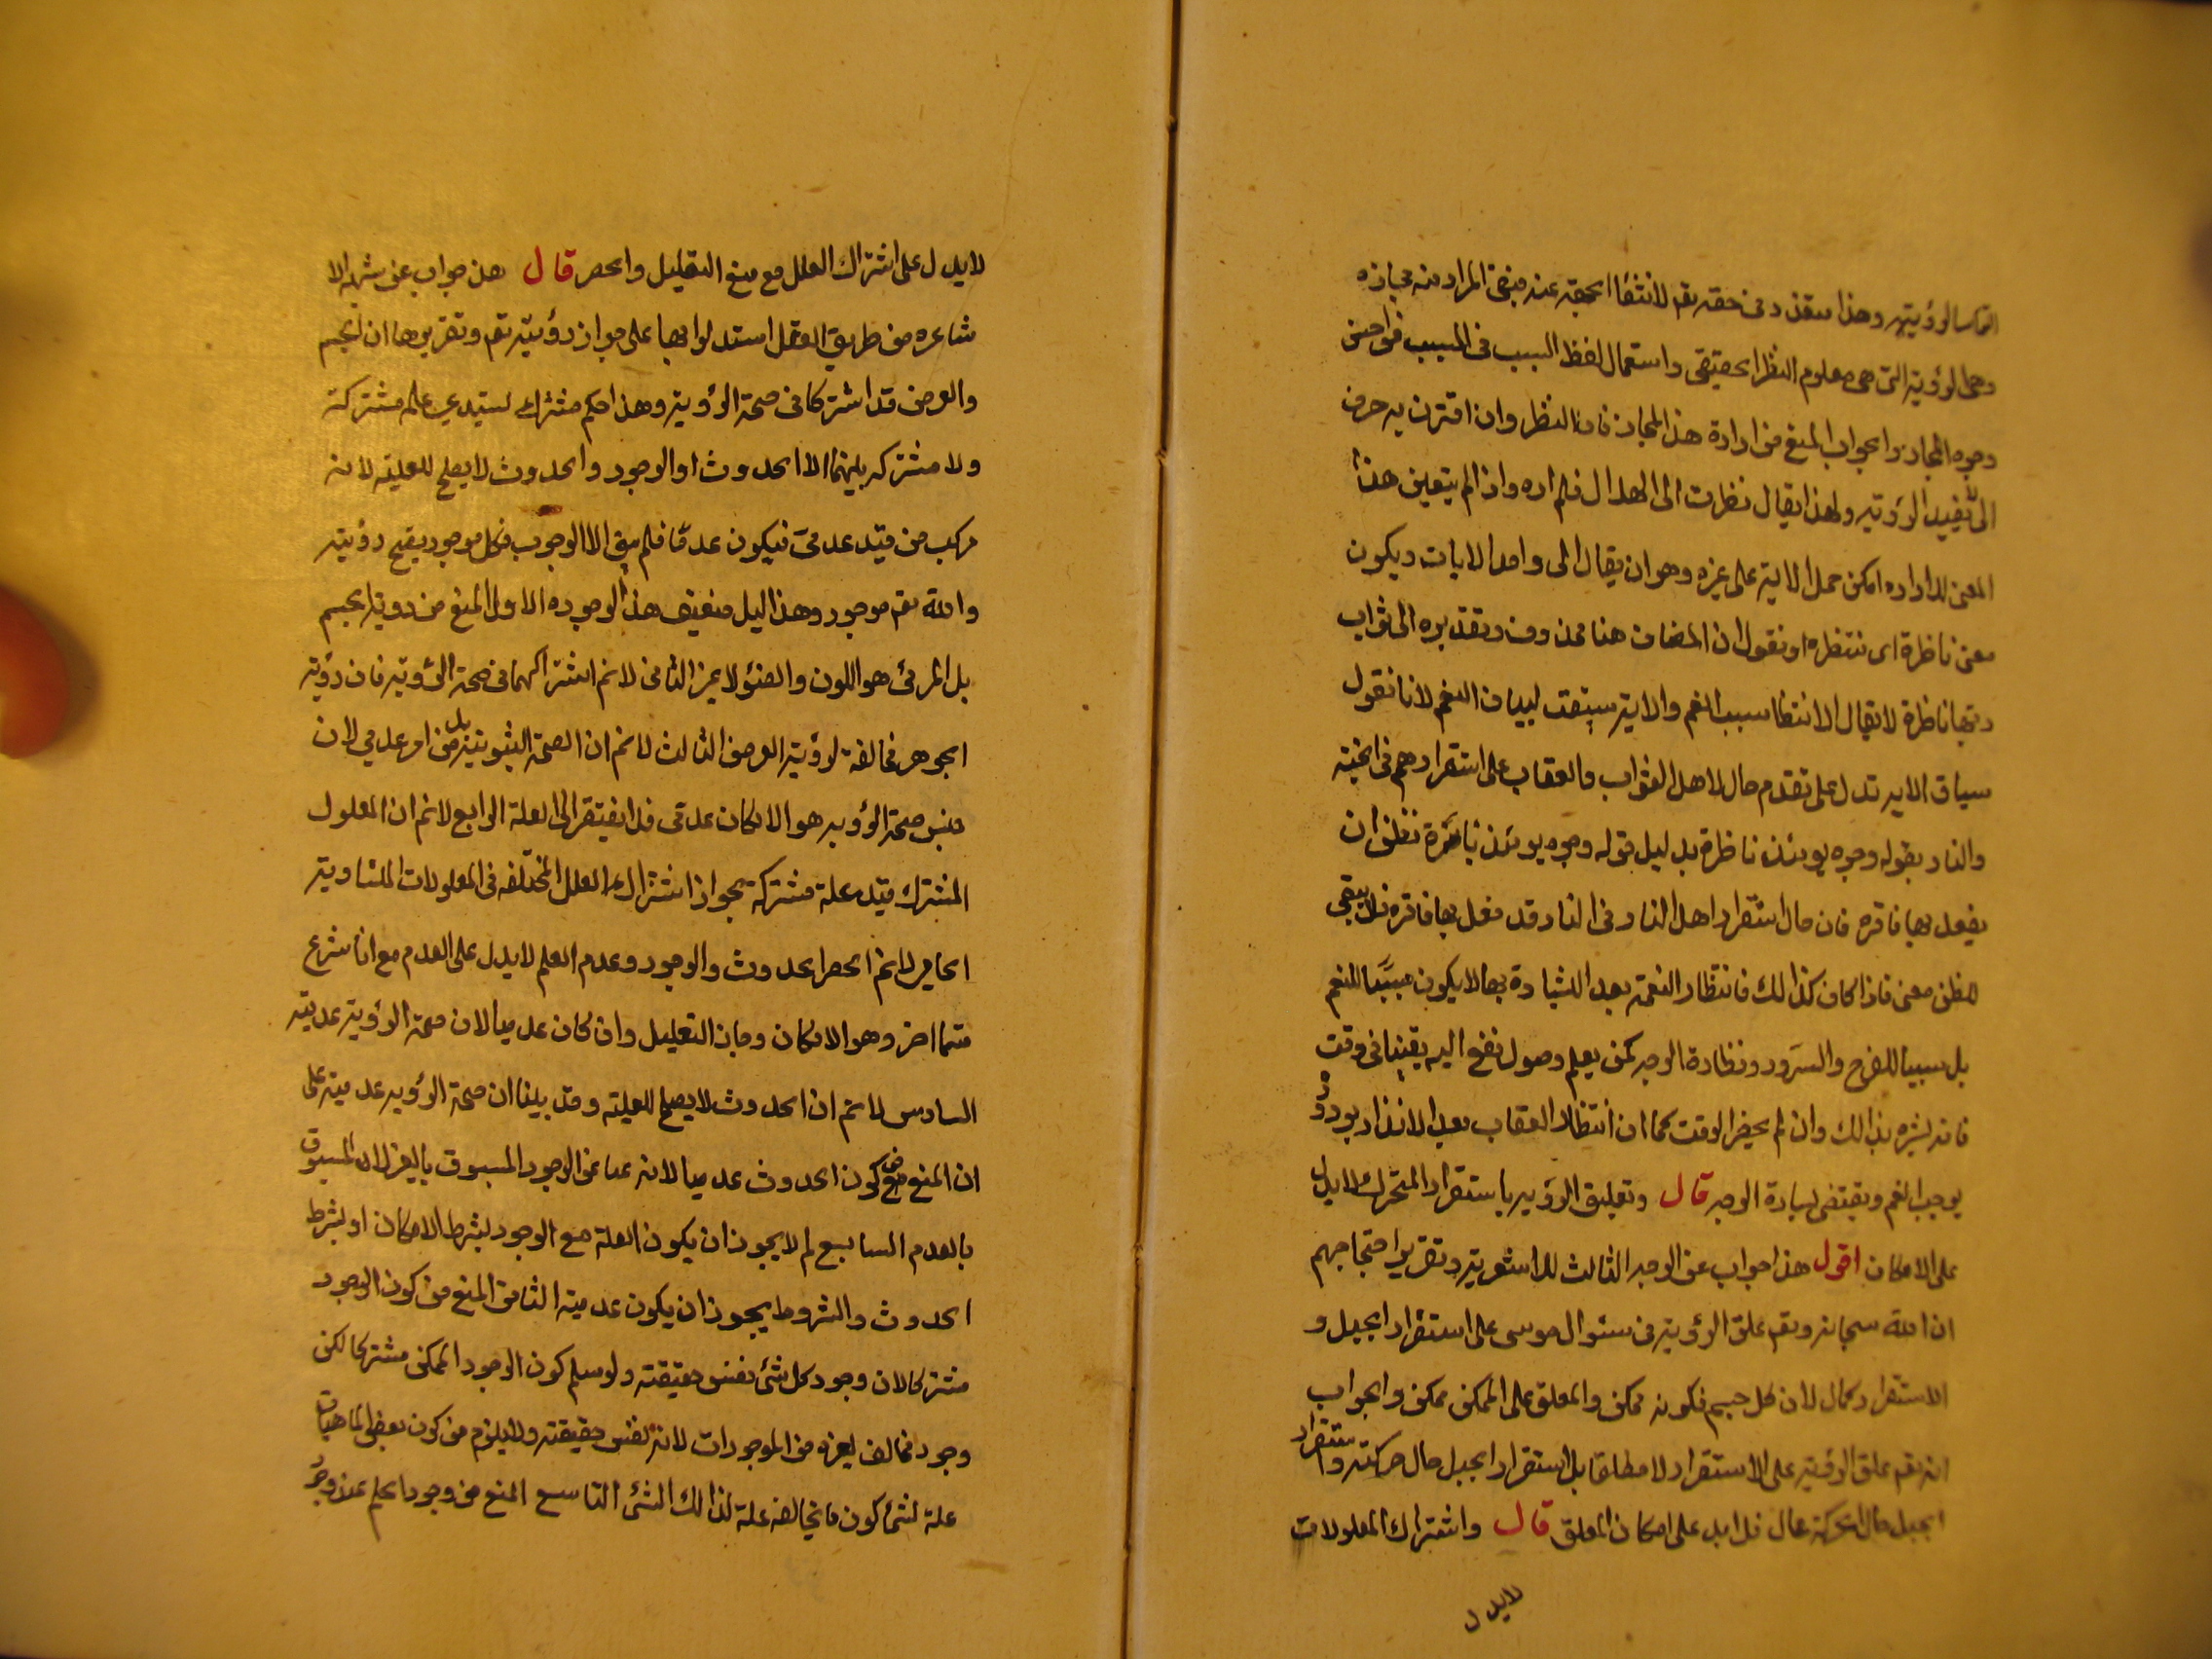 التماسا لرؤيته وهذا متعذر فى حقه تع لانتفاء الجهة عنه فبقى المراد منه مجازه
وهى الرؤية التى هى معلوم النظر الحقيقى واستعمال لفظ السبب فى المسبب من احسن
وجوه المجاز والجواب المنع من ارادة هذا المجاز فان النظر وان اقترن به حرف
الى لا يفيد الرؤية ولهذا يقال نظرت الى الهلال فلم اره واذا لم يتعين هذا
المعنى للارادة امكن حمل الاية على غيره وهو ان يقال الى واحد الالاء ويكون
معنى ناظرة اى منتظرة او نقول ان المضاف هنا محذوف وتقديره الى ثواب
ربها ناظرة لا يقال الانتظار سبب الغم والاية سيقت لبيان النعم لانا نقول
سياق الاية تدل على تقدم حال لاهل الثواب والعقاب على استقرارهم فى الجنة
والنار بقوله وجوه يومئذ ناظرة بدليل قوله وجوه يومئذ باسرة تظن ان
يفعل بها فاقرة فان حال استقرار اهل النار فى النار قد فعل بها فاقرة فلا يبقى
للظن معنى فاذا كان كذالك فانتظار النعمة بعد البشارة بها لا يكون سببا للغم
بل سببا للفرح والسرور ونظارة الوجه كمن يعلم وصول نفع اليه يقينا فى وقت
فانه يسر بذالك وان لم يحضر الوقت كما ان انتظار العقاب بعد الانذار بوروده
يوجب الغم ويقتضى بسارة الوجه قال وتعليق الرؤية باستقرار المتحرك لا يدل
على الامكان اقول هذا جواب عن الوجه الثالث للاشعرية وتقرير احتجاجهم
ان الله سبحانه وتع علق الرؤية فى سئوال موسى على استقرار الجبل و
الاستقرار كمال لان كل جسم فكونه ممكن والمعلق على الممكن ممكن والجواب
انه تع علق الرؤية على الاستقرار لا مطلقا بل استقرار الجبل حال حركته واستقرار
الجبل حال الحركة محال فلا يدل على امكان المعلق قال واشتراك المعلولات
لا يدل
لا يدل على اشتراك العلل مع منع التعليل والحصر قال هذا جواب عن شبهة الا
شاعره من طريق العقل استدلوا بها على جواز رؤيته تع وتقريرها ان الجسم
والعرض قد اشتركا فى صحة الرؤية وهذا حكم مشترك يستدعى علة مشتركة
ولا مشترك بينهما الا الحدوث او الوجود والحدوث لا يصلح للعلية لانه
مركب من قيد عدمى فيكون عدميا فلم يبق الا الوجوب فكل موجود يصح رؤيته
والله تع موجود وهذا الدليل ضعيف هذا لوجوه الاول المنع من رؤية الجسم
بل المرئى هو اللون والضوء لا غير الثانى لا نم اشتراكهما فى صحة الرؤية فان رؤية
الجوهر مخالفة لرؤية العرض الثالث لا نم ان الصحة ثبوتية بل هى امر عدمى لان
جنس صحة الرؤية هو الامكان عدمى فلا يفتقر الى العلة الرابع لا نم ان المعلول
المشترك قيد علة مشتركة يجوز اشتراك العلل المختلفه فى المعلولات المتساوية
الخامس لا نم الحصر الحدوث والوجود وعدم العلم لا يدل على العدم مع انا نشرع
قسما اخر وهو الامكان وجاز التعليل وان كان عدميا لان صحة الرؤية عدمية
السادس لا نم ان الحدوث لا يصلح للعلية وقد بينا ان صحة الرؤية عدمية على
ان المنع من كون الحدوث عدميا لانه عبارة عن الوجود المسبوق بالغير لا المسبوق
بالعدم السابع لم لا يجوز ان يكون العلة مع الوجود بشرط الامكان او بشرط
الحدوث والشروط يجوز ان يكون عدمية الثامن المنع من كون الوجود
مشتركا لان وجود كل شئ نفس حقيقته ولو سلم كون الوجود الممكن مشتركا لكن
وجود مخالف لغيره من الموجودات لانه نفس حقيقته ولا يلزم من كون بعض الماهيات
علة لشئ كون ما يخالفه علة لذالك الشئ التاسع المنع من وجود الحكم عند وجود